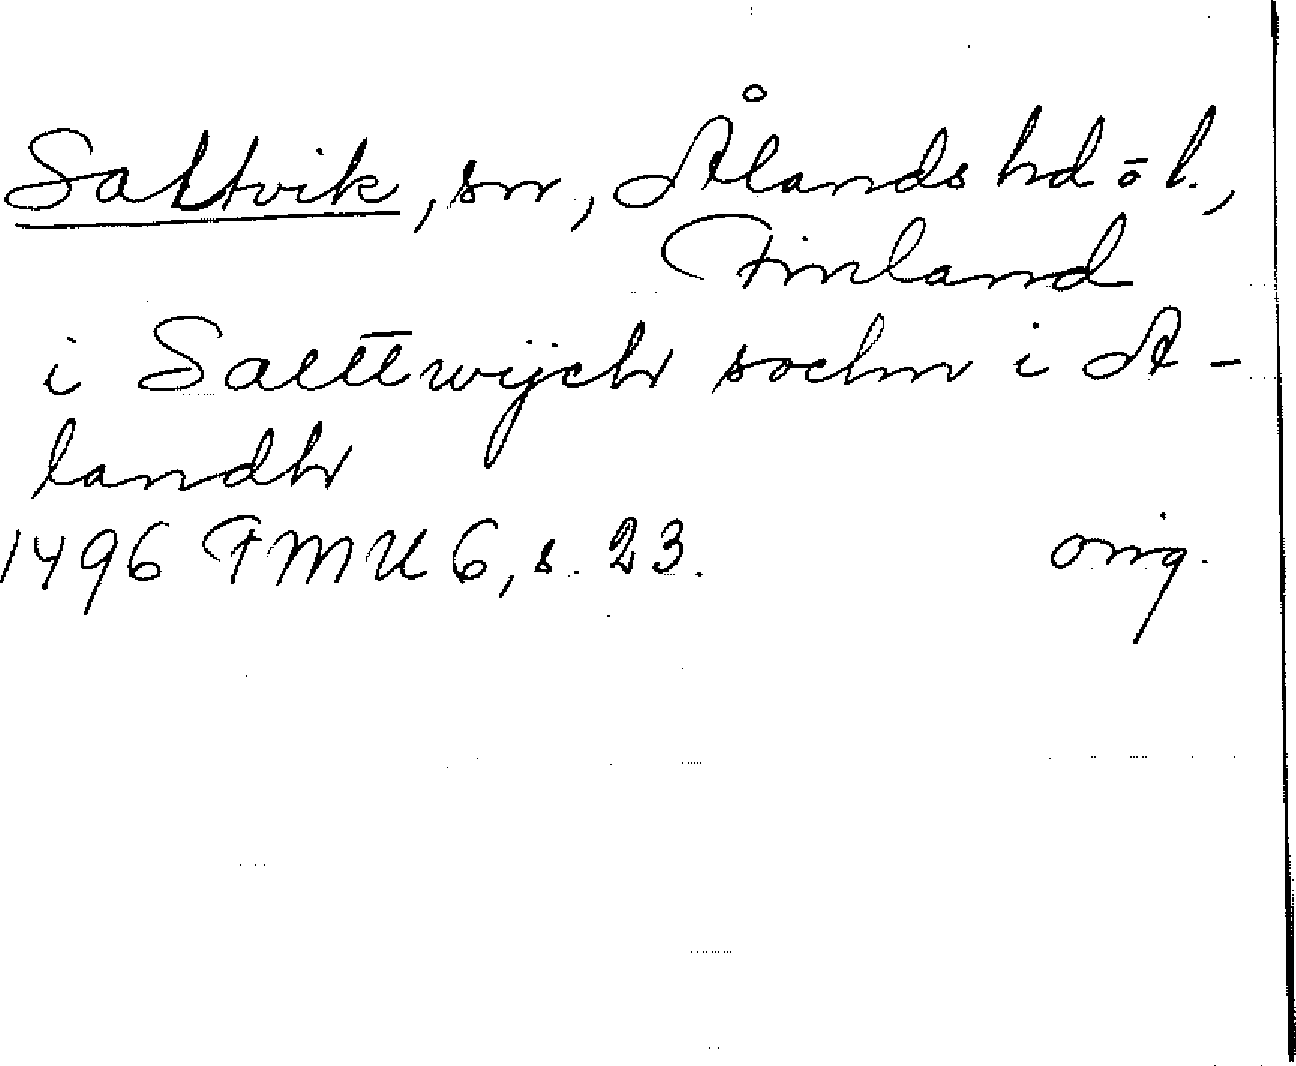 Saltvik, sn, Ålands hd o l.,
Finland
i Saelttwijch sochn i A-
landh
1496 FMU 6, s. 23. orig.